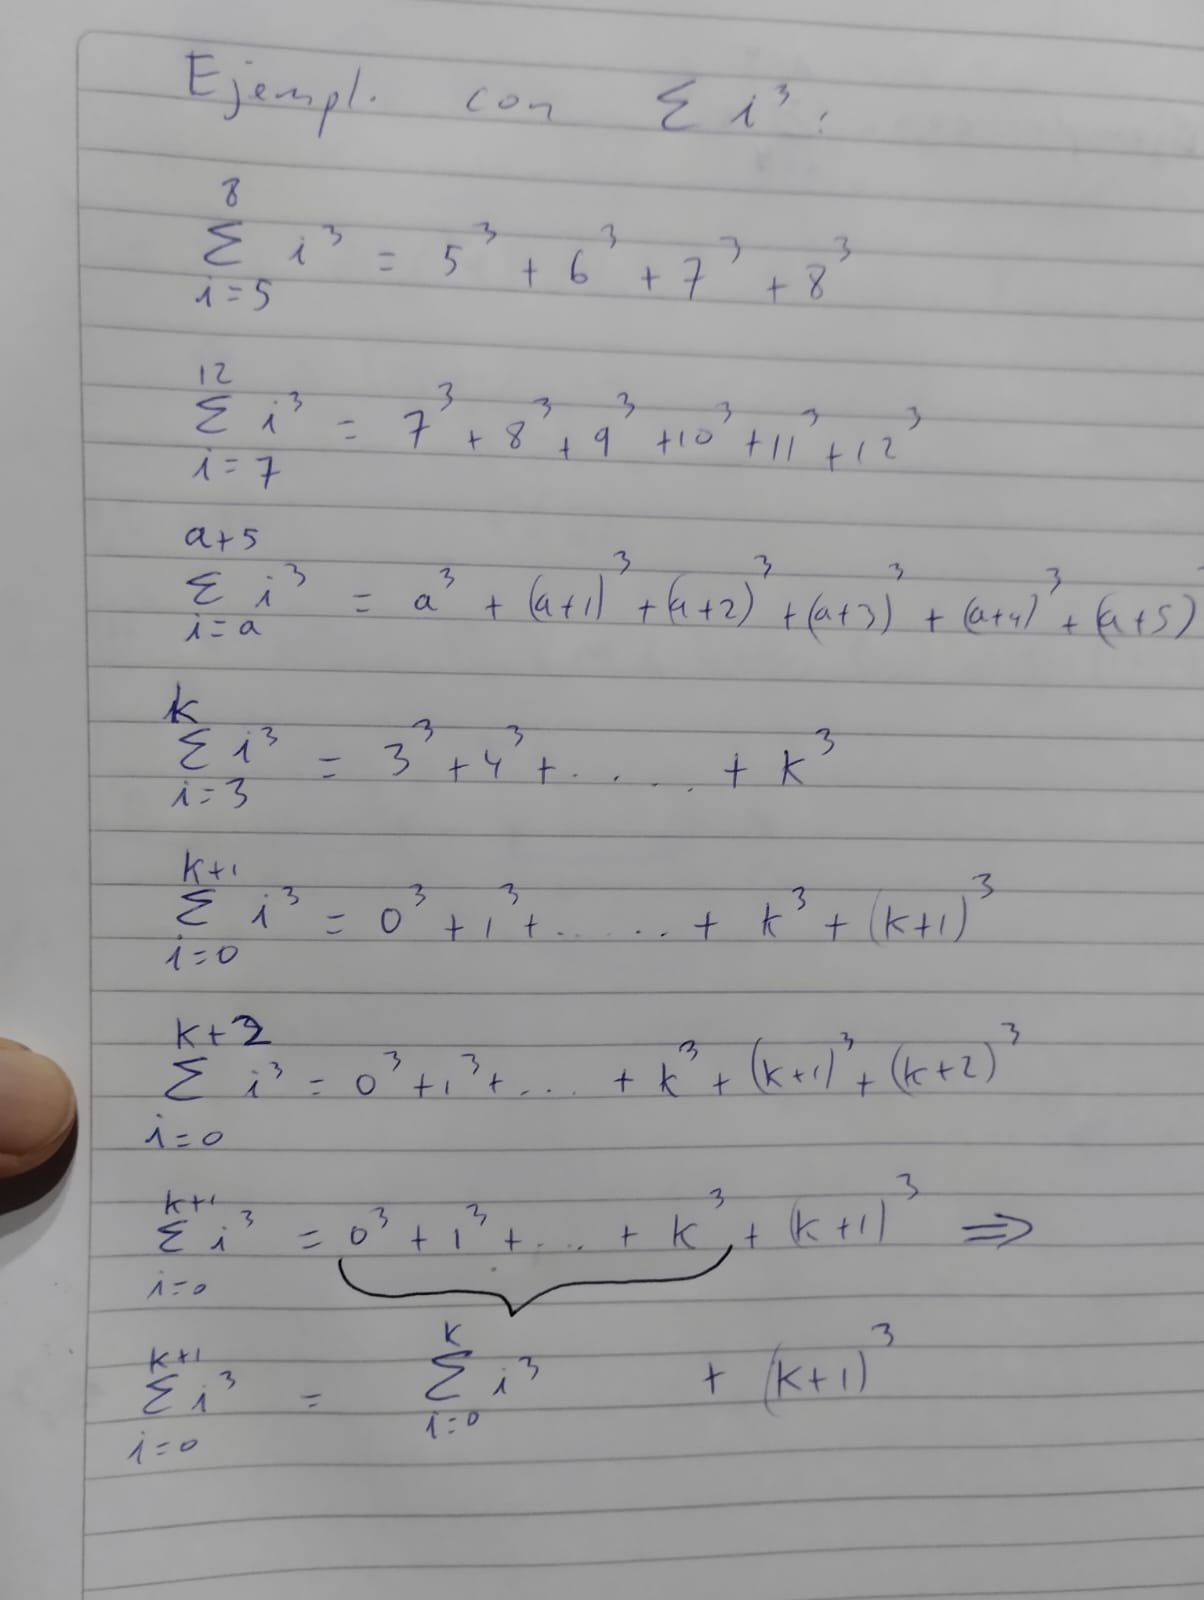 Ejempl. con Σ i³:
8
Σ i³ = 5³ + 6³ + 7³ + 8³
i=5
12
Σ i³ = 7³ + 8³ + 9³ + 10³ + 11³ + 12³
i=7
a+5
Σ i³ = a³ + (a+1)³ + (a+2)³ + (a+3)³ + (a+4)³ + (a+5)³
i=a
k
Σ i³ = 3³ + 4³ + ...... + k³
i=3
k+1
Σ i³ = 0³ + 1³ + ...... + k³ + (k+1)³
i=0
k+2
Σ i³ = 0³ + 1³ + .... + k³ + (k+1)³ + (k+2)³
i=0
k+1
Σ i³ = 0³ + 1³ + .... + k³ + (k+1)³ ⇒
i=0
k+1 k
Σ i³ = Σ i³ + (k+1)³
i=0 i=0